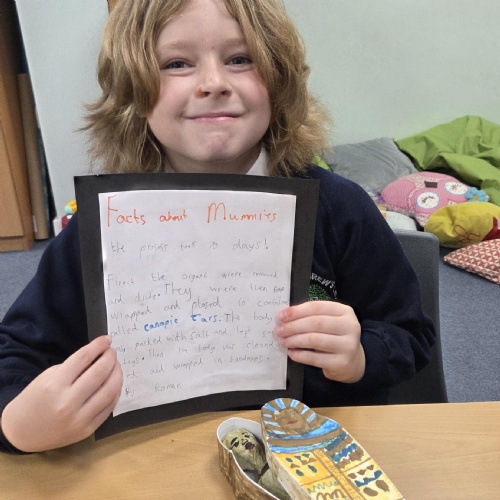 Facts about Mummies
the process took 70 days!
First the organs were removed
and dried. They were then
wrapped and placed in containers
called canopic Jars. The body
packed with salt and left
days. Then the body was cleaned
and wrapped in bandages.
By Roman